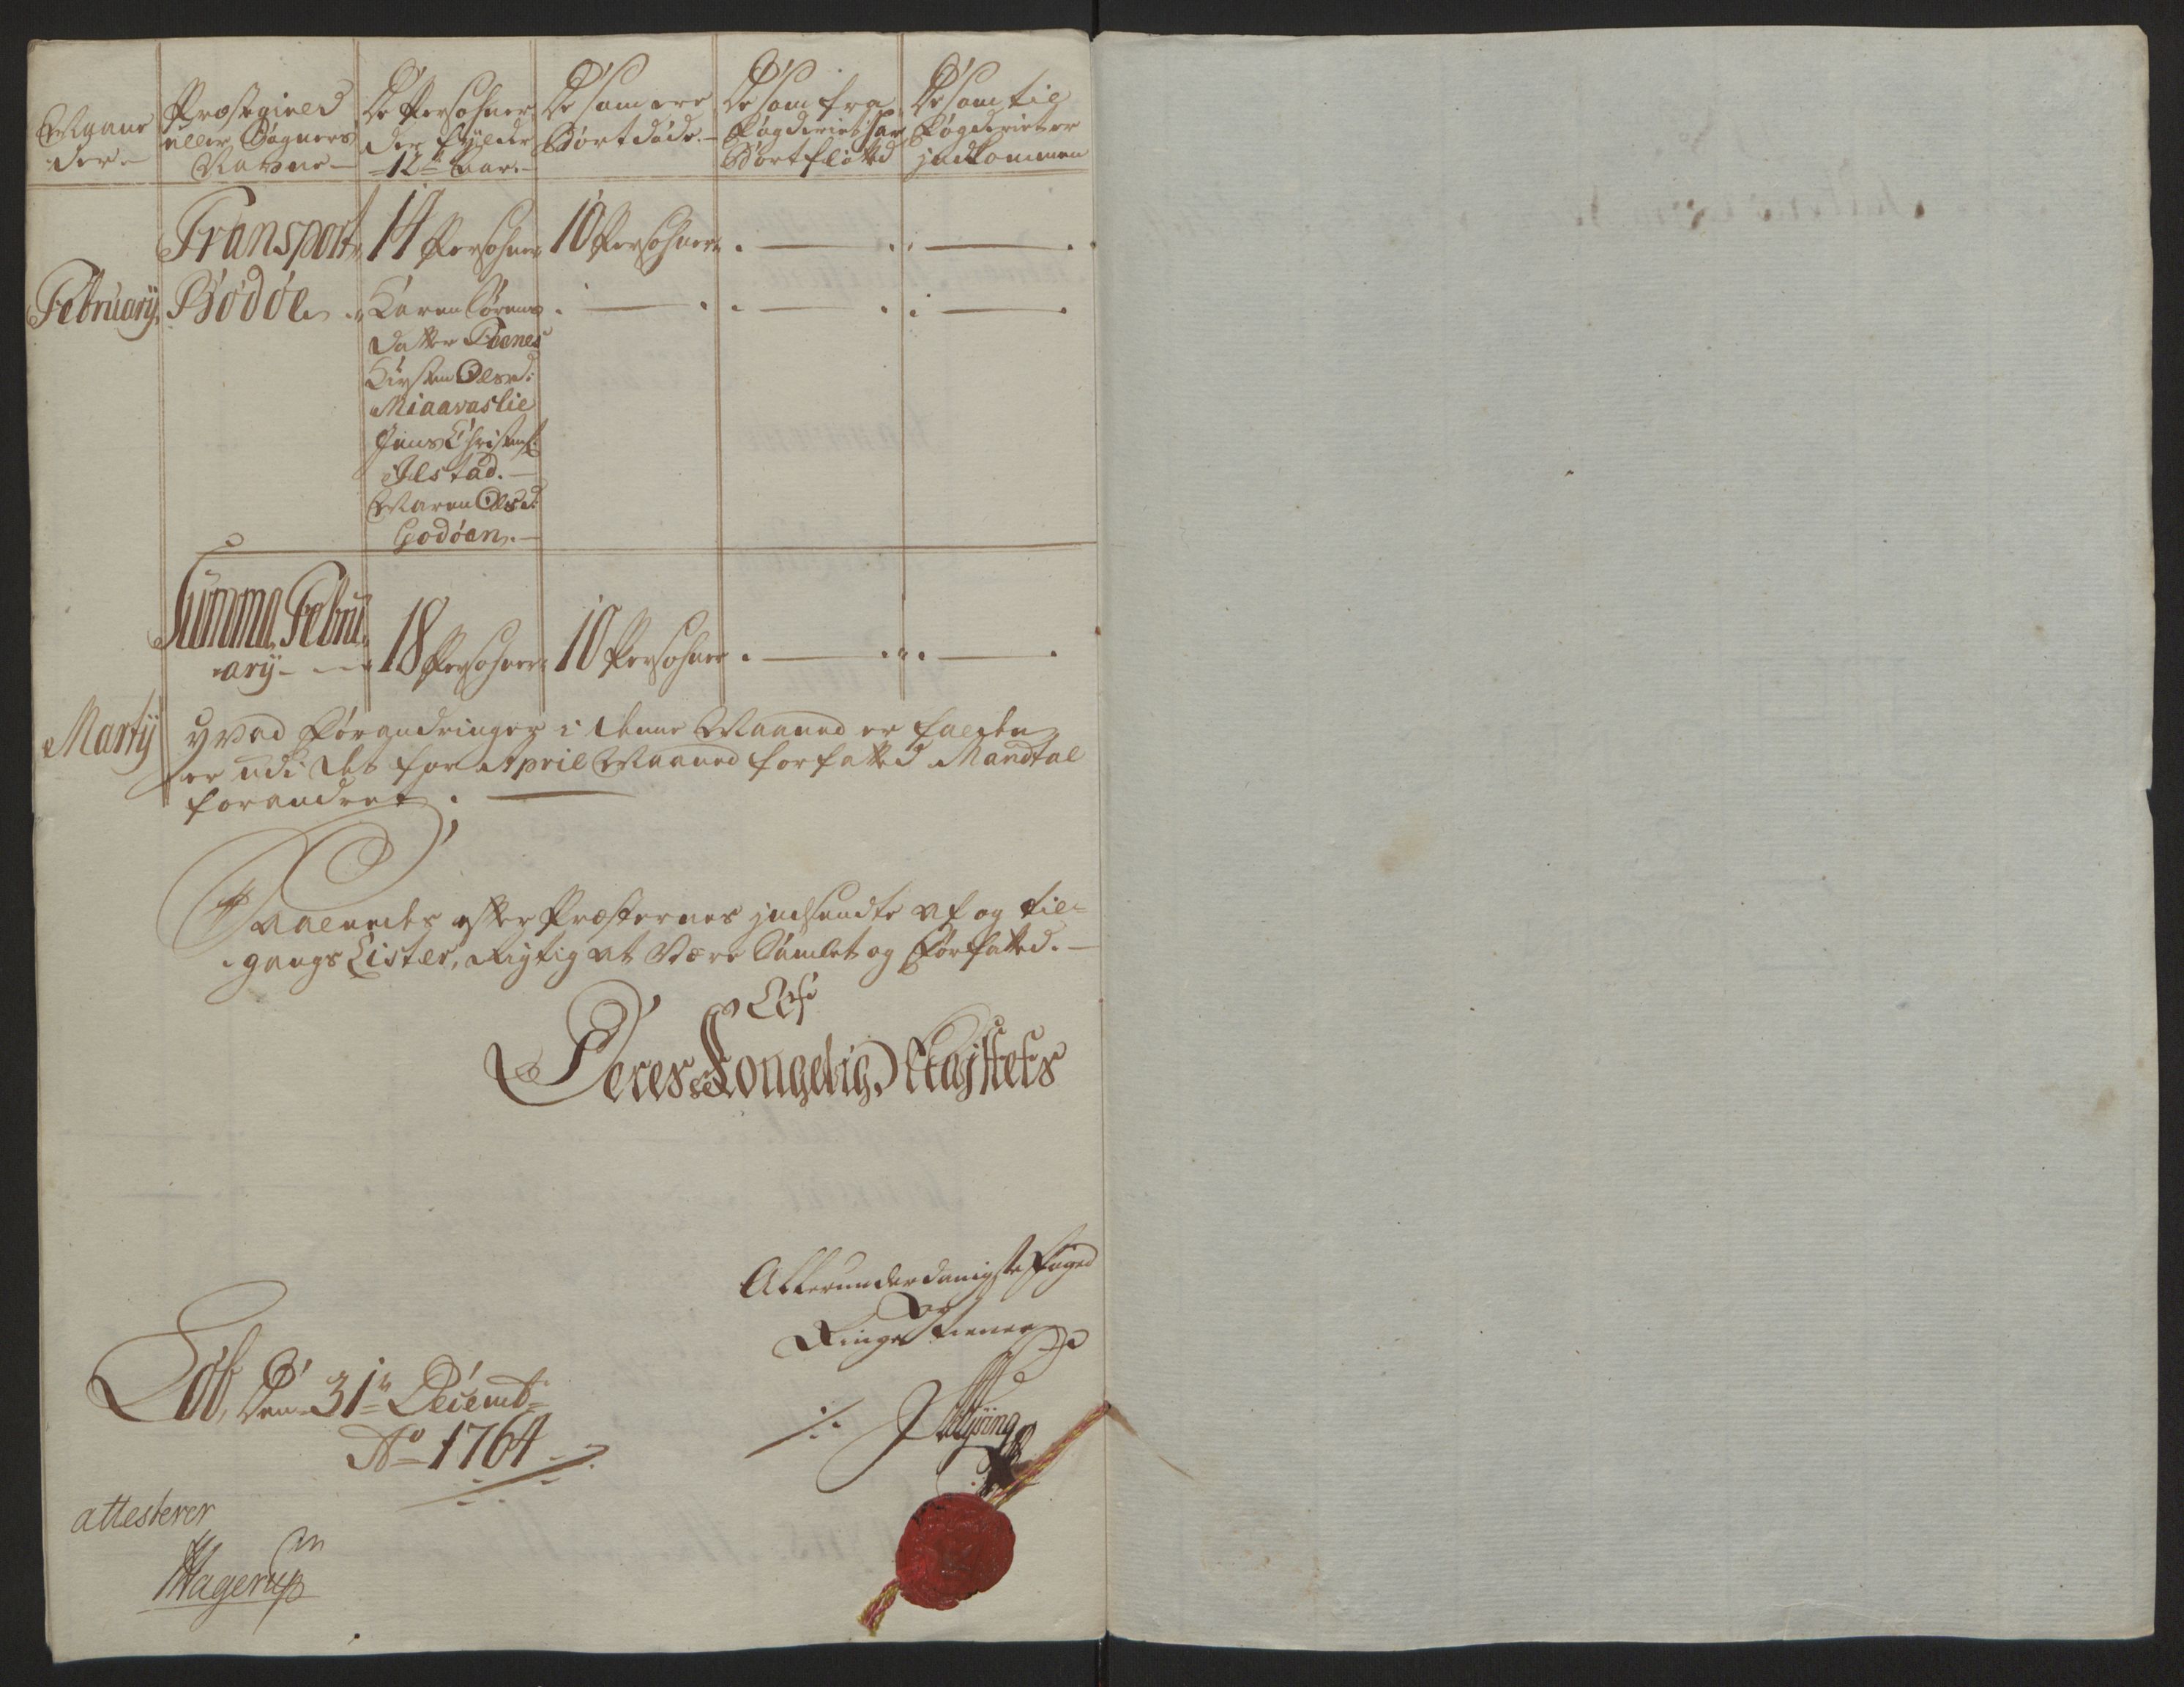 Maane
der
Præstegield
eller Sogners
Navne
De Persohner
der fylder
12te Aar.
De som ere
Bortdøde.
De som fra
Fogderiet har
Bortfløtted
De som til
Fogderiet er
indkommen
Transport 14 Persohner 10 Persohner
February Bodøe Karen Sørens
datter
Kirsten Olsd:
Miaavaslie
Jens Christens:
Ilstad.
Maren Olsd:
Godøen.
Summa Febru
ary 18 Persohner 10 Persohner
Marty
Hvad Forandringer i denne Maaned er falden
er udi det for April Maaned forfatted Mandtal
forandret.
Saaledes efter Præsternes indsendte af og til-
gangs Lister, Rigtig at være Samlet og Forfatted.
Deres Kongelig Mayttets
Allerunderdanigste Foged
og
Ringe tiener
Løb, Den 31te Decemb
Ao 1764
attesterer
Hagerup